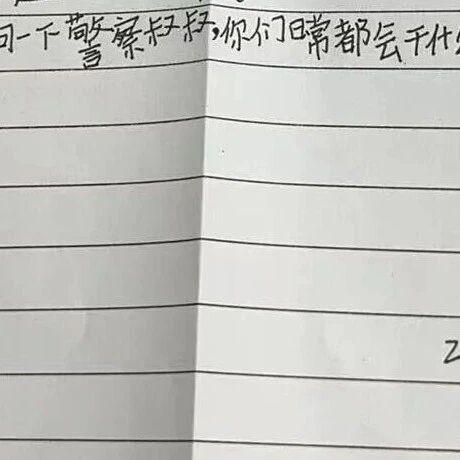 一下警察叔叔,你们日常都会干什
2